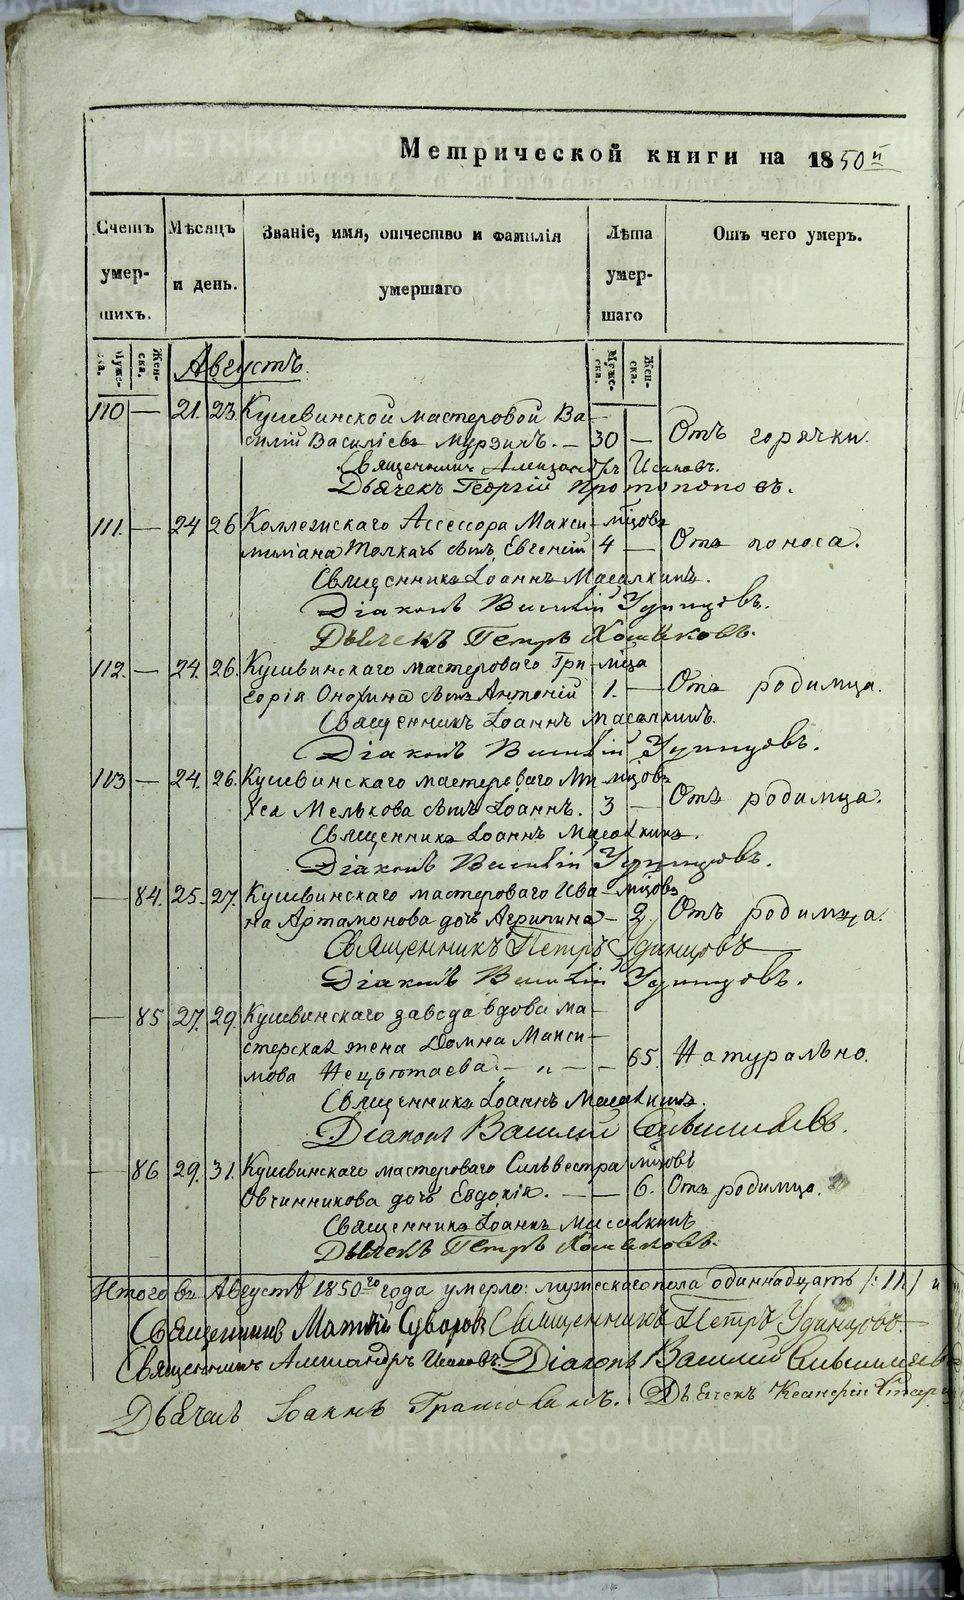 Метрической книги на 1850й
Счетъ умершихъ. Мѣсяцъ и день. Званіе, имя, отчество и фамилія умершаго Лѣта умершаго Отъ чего умеръ.
Мужеска. Женска. Мужеска. Женска.
Августъ.
110 — 21. 23. Кушвинской мастеровой Ва-
силій Василіевъ Мурзинъ. — 30 — Отъ горячки.
Священникъ Александръ Исаковъ.
Дьячекъ Георгій Протопоповъ.
111. — 24 26 Коллежскаго Ассессора Макси- мѣсцовъ
миліана Толкачъ сынъ Евгеній 4 — Отъ поноса.
Священникъ Іоаннъ Масалкинъ.
Діаконъ Василій Удинцовъ.
Дьячекъ Петръ Хомяковъ.
112. — 24. 26. Кушвинскаго мастероваго Гри- мѣсца
горія Онохина сынъ Антоній 1. — Отъ родимца.
Священникъ Іоаннъ Масалкинъ.
Діаконъ Василій Удинцовъ.
113 — 24. 26. Кушвинскаго мастероваго Ми- мѣсцовъ
хея Мелькова сынъ Іоаннъ. 3 — Отъ родимца.
Священникъ Іоаннъ Масалкинъ.
Діаконъ Василій Удинцовъ.
— 84. 25. 27. Кушвинскаго мастероваго Ива- мѣсцовъ
на Артамонова дочь Агрипина — 2. Отъ родимца.
Священникъ Петръ Удинцовъ
Діаконъ Василій Удинцовъ.
— 85 27. 29. Кушвинскаго завода вдова ма-
стерская жена Домна Макси-
мова Нецвѣтаева. — „ — — 65. Натурально.
Священникъ Іоаннъ Масалкинъ.
Діаконъ Василій
— 86 29. 31. Кушвинскаго мастероваго Сильвестра мѣсцовъ
Овчинникова дочь Евдокія. — — 6. Отъ родимца.
Священникъ Іоаннъ Масалкинъ
Дьячекъ Петръ Хомяковъ.
Итого въ Августѣ 1850го года умерло: мужескаго пола одиннадцать /:11:/ и
Священникъ Матѳій Суворовъ Священникъ Петръ Удинцовъ.
Священникъ Александръ Исаковъ. Діаконъ Василій
Дьячекъ Іоаннъ Дьячекъ
METRIKI.GASO-URAL.RU